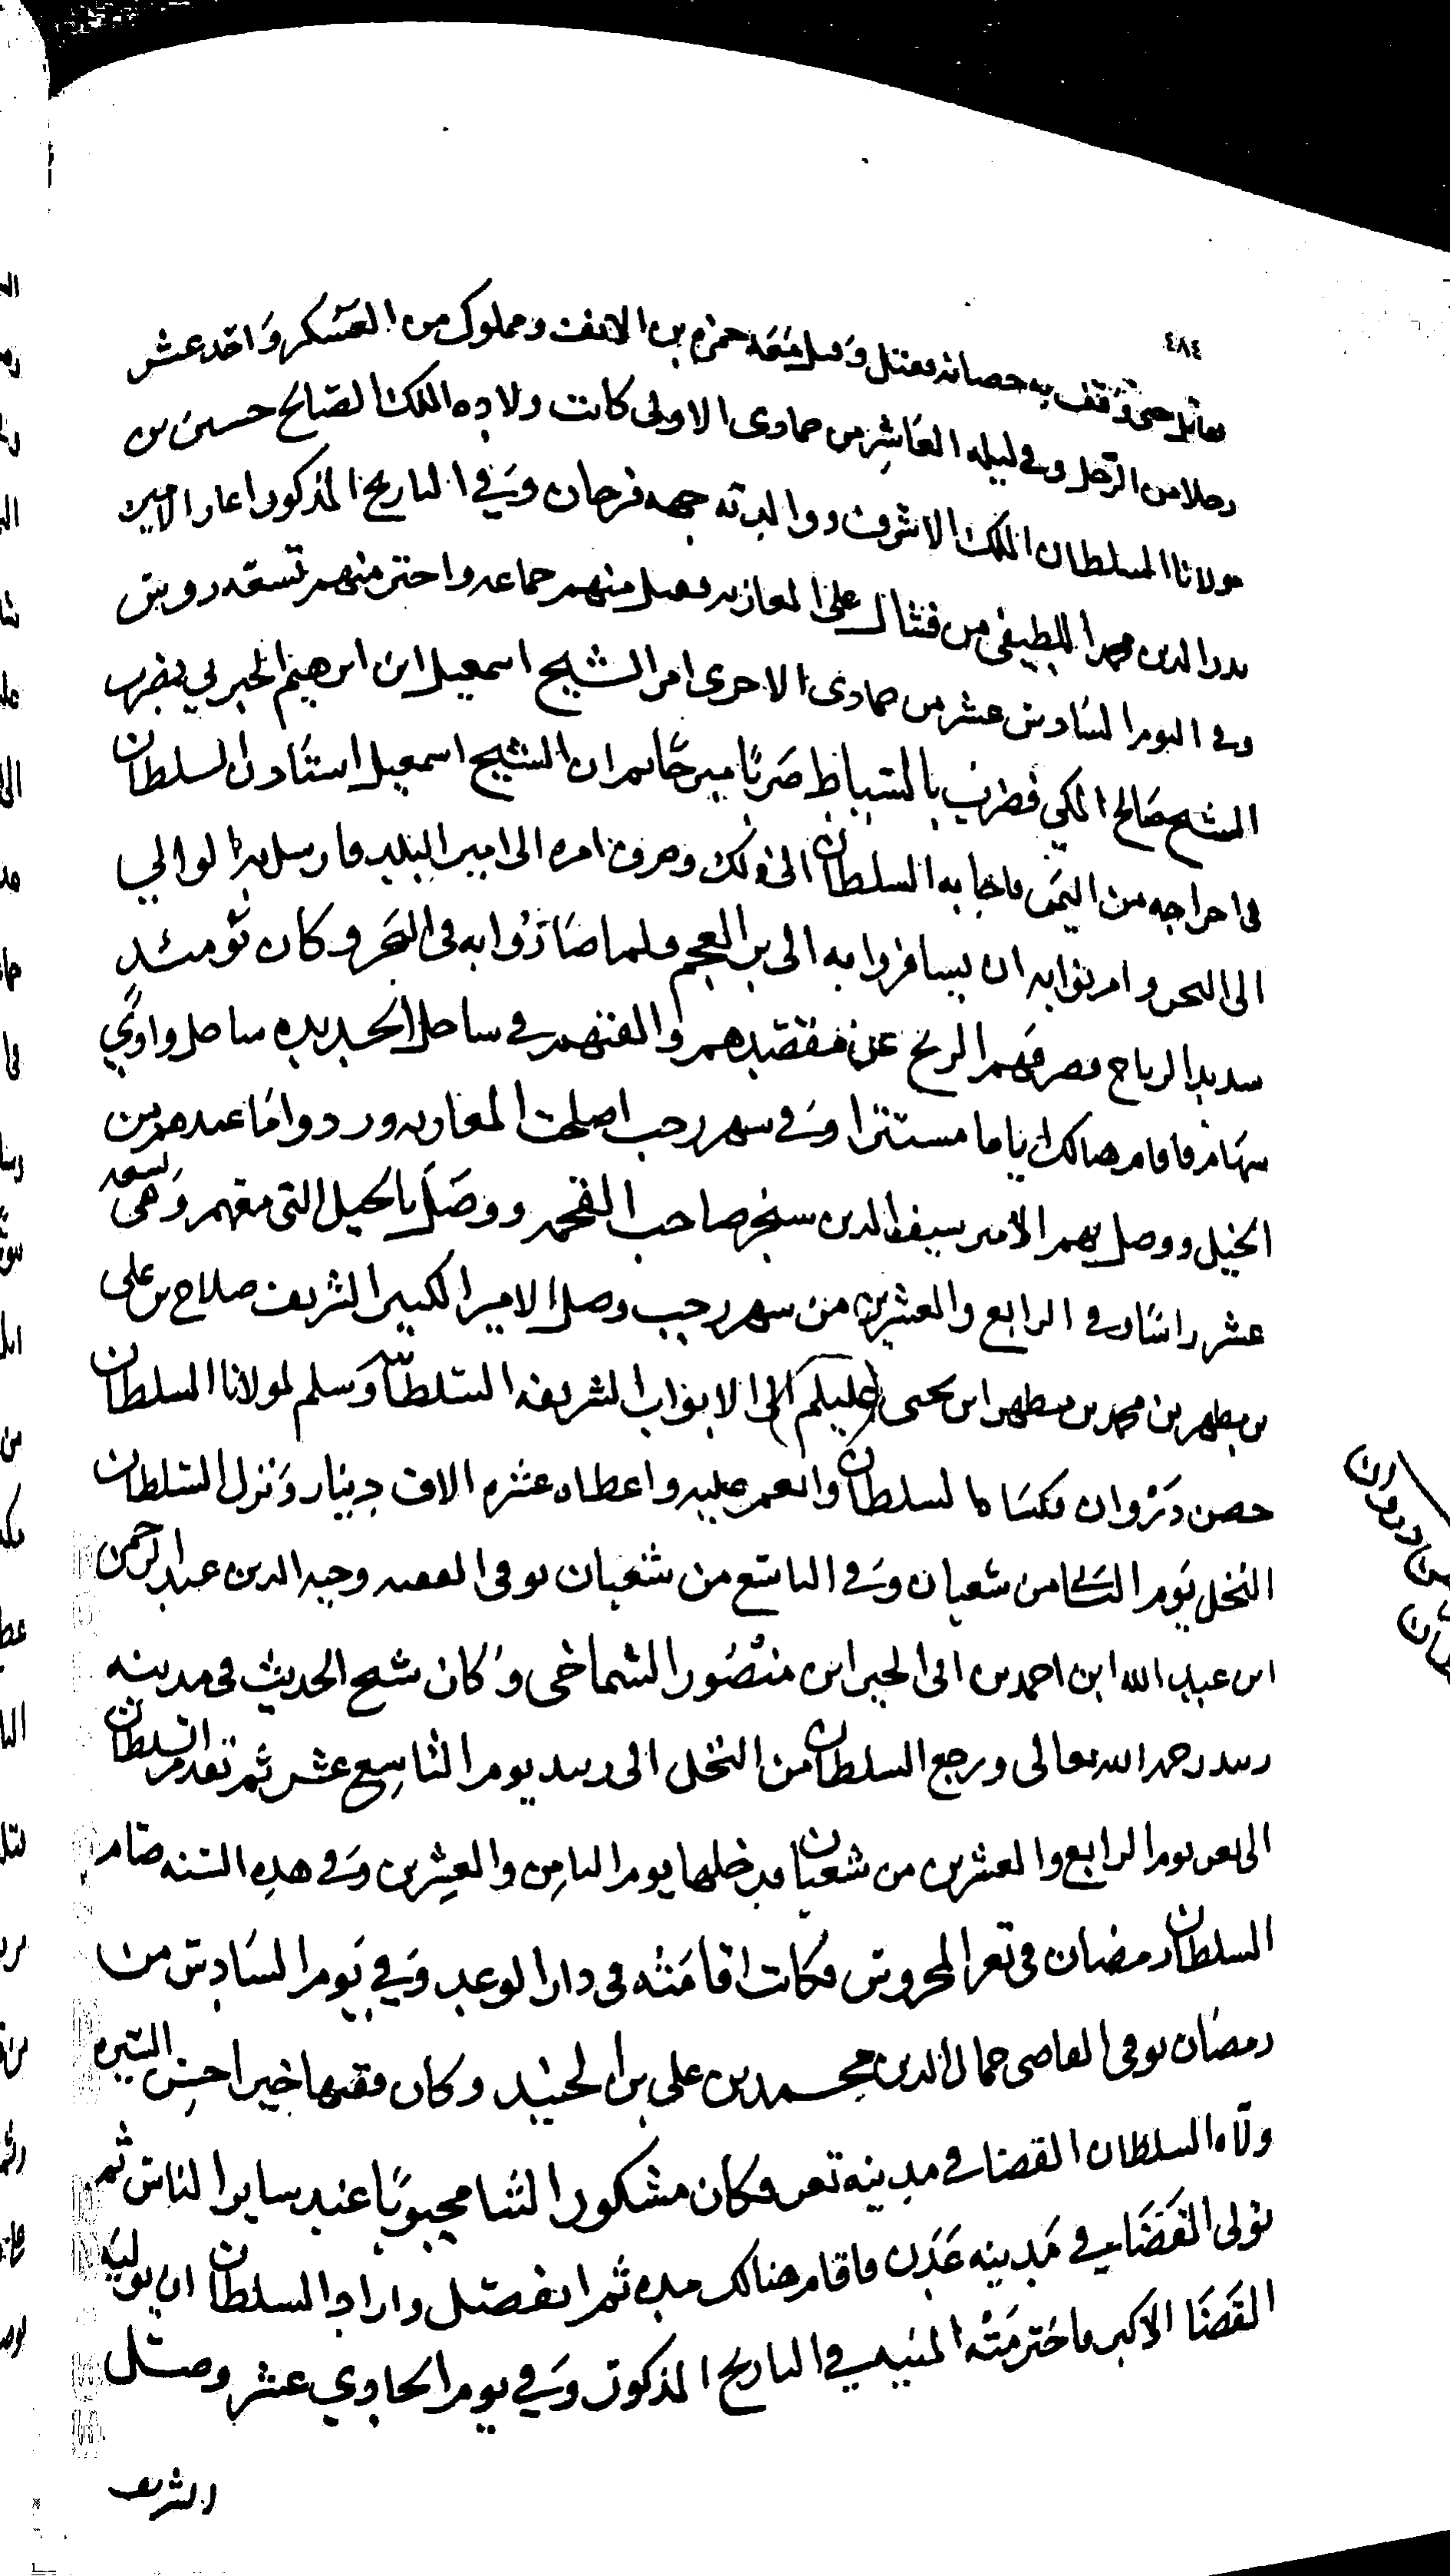 ٤٨٤
يقاتل حتى وقف به حصانه فقتل وقتل معه حمزه بن الانف ومملوك من العسكر واحد عشر
رجلا من الرجل وفي ليله العاشر من جمادى الاولى كانت ولاده الملك الصالح حسين بن
مولانا السلطان الملك الاشرف ووالدته جهه فرحان وفي التاريخ المذكور اغار الامير
بدر الدين محمد اللطيفي من فشال على المعازبه فقتل منهم جماعه واحتز منهم تسعه رووس
وفي اليوم السادس عشر من جمادى الاخرى امر الشيخ اسمعيل ابن ابرهيم الجبرتي بضرب
الشيخ صالح المكي فضرب بالسياط ضربا مبرحا ثم ان الشيخ اسمعيل استاذن السلطان
في اخراجه من اليمن فاجابه السلطان الى ذلك وصرف امره الى امير البلد فارسل به الوالي
الى البحر وامر نوابه ان يسافروا به الى بر العجم فلما صاروا به في البحر وكان يومئذ
شديد الرياح فصرفهم الريح عن مقصدهم والقتهم في ساحل الحديده ساحل وادي
سهام فاقام هنالك اياما مستترا وفي شهر رجب اصلحت المعازبه وردوا ما عندهم من
الخيل ووصل بهم الامير سيف الدين سنجر صاحب القحمه ووصل بالخيل التي معهم وهي تسعه
عشر راسا وفي الرابع والعشرين من شهر رجب وصل الامير الكبير الشريف صلاح بن علي
بن مطهر بن محمد بن مطهر ابن يحيى (عليكم) الى الابواب الشريفه السلطانيه وسلم لمولانا السلطان
حصن دروان فكساه السلطان وانعم عليه واعطاه عشره الاف دينار ونزل السلطان
النخل يوم الثامن شعبان وفي التاسع من شعبان توفى الفقيه وجيه الدين عبد الرحمن
ابن عبد الله ابن احمد بن ابي الخير ابن منصور الشماخي وكان شيخ الحديث في مدينه
زبيد رحمه الله تعالى ورجع السلطان من النخل الى زبيد يوم التاسع عشر ثم تقدم السلطان
الى تعز يوم الرابع والعشرين من شعبان فدخلها يوم الثامن والعشرين وفي هذه السنه صام
السلطان رمضان في تعز المحروس فكانت اقامته في دار الوعد وفي يوم السادس من
رمضان توفى القاضي جمال الدين محمد بن علي بن الجنيد وكان فقيها خيرا حسن السيره
ولاه السلطان القضا في مدينه تعز فكان مشكور الثنا محبوبا عند ساير الناس ثم
تولى القضا في مدينه عدن فاقام هنالك مده ثم انفصل واراد السلطان ان يوليه
القضا الاكبر فاخترمته المنيه في التاريخ المذكور وفي يوم الحادي عشر وصل
الشريف